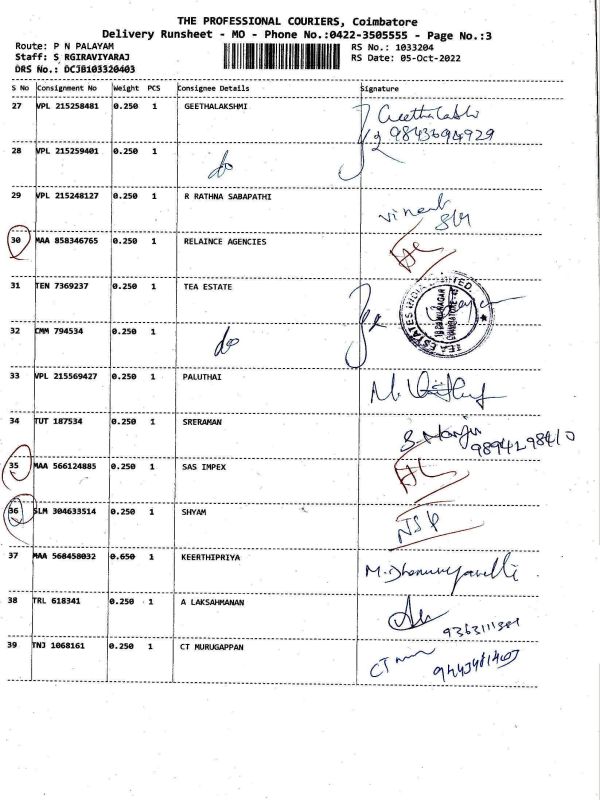 THE PROFESSIONAL COURIERS, Coimbatore
Delivery Runsheet - MO - Phone No.:0422-3505555 - Page No.:3
Route: P N PALAYAM RS No.: 1033204
Staff: S RGIRAVIYARAJ RS Date: 05-Oct-2022
DRS No.: DCJB103320403
S No Consignment No Weight PCS Consignee Details Signature
27 VPL 215258481 0.250 1 GEETHALAKSHMI Geethalakshi
9843694929
28 VPL 215259401 0.250 1 do
29 VPL 215248127 0.250 1 R RATHNA SABAPATHI
30 MAA 858346765 0.250 1 RELAINCE AGENCIES
31 TEN 7369237 0.250 1 TEA ESTATE
TEA ESTATES INDIA LIMITED.
32 CMM 794534 0.250 1 do
33 VPL 215569427 0.250 1 PALUTHAI
34 TUT 187534 0.250 1 SRERAMAN
9894298410
35 MAA 566124885 0.250 1 SAS IMPEX
36 SLM 304633514 0.250 1 SHYAM
37 MAA 568458032 0.650 1 KEERTHIPRIYA
38 TRL 618341 0.250 1 A LAKSAHMANAN
39 TNJ 1068161 0.250 1 CT MURUGAPPAN CT